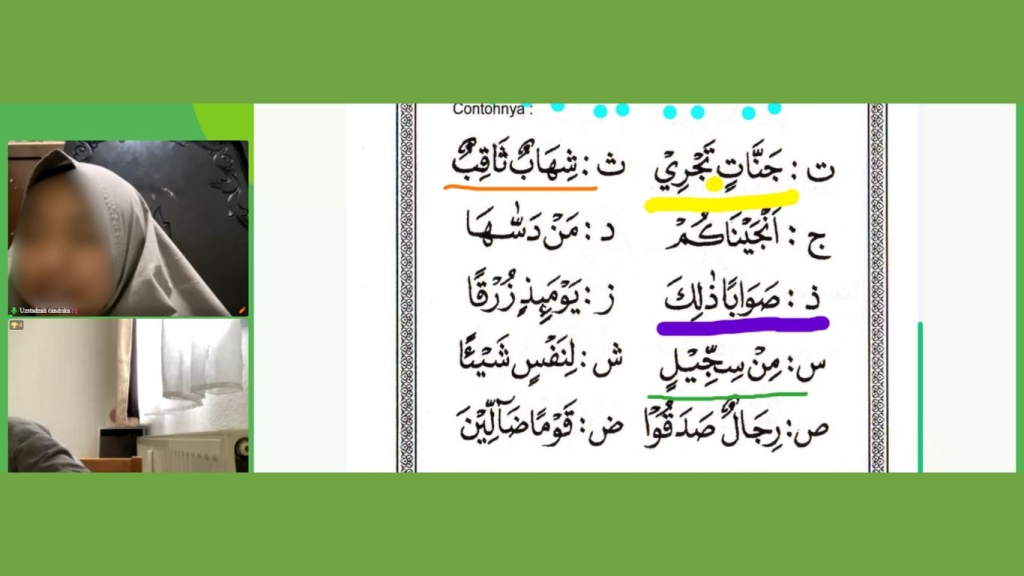 Contohnya :
ت : جَنَّاتٍ تَجْرِيْ ث : شِهَابٌ ثَاقِبٌ
ج : اَنْجَيْنَاكُمْ د : مَنْ دَسّٰىهَا
ذ : صَوَابًا ذٰلِكَ ز : يَوْمَىِٕذٍ زُرْقًا
س : مِنْ سِجِّيْلٍ ش : لِنَفْسٍ شَيْئًا
ص : رِجَالٌ صَدَقُوْا ض : قَوْمًا ضَآلِّيْنَ